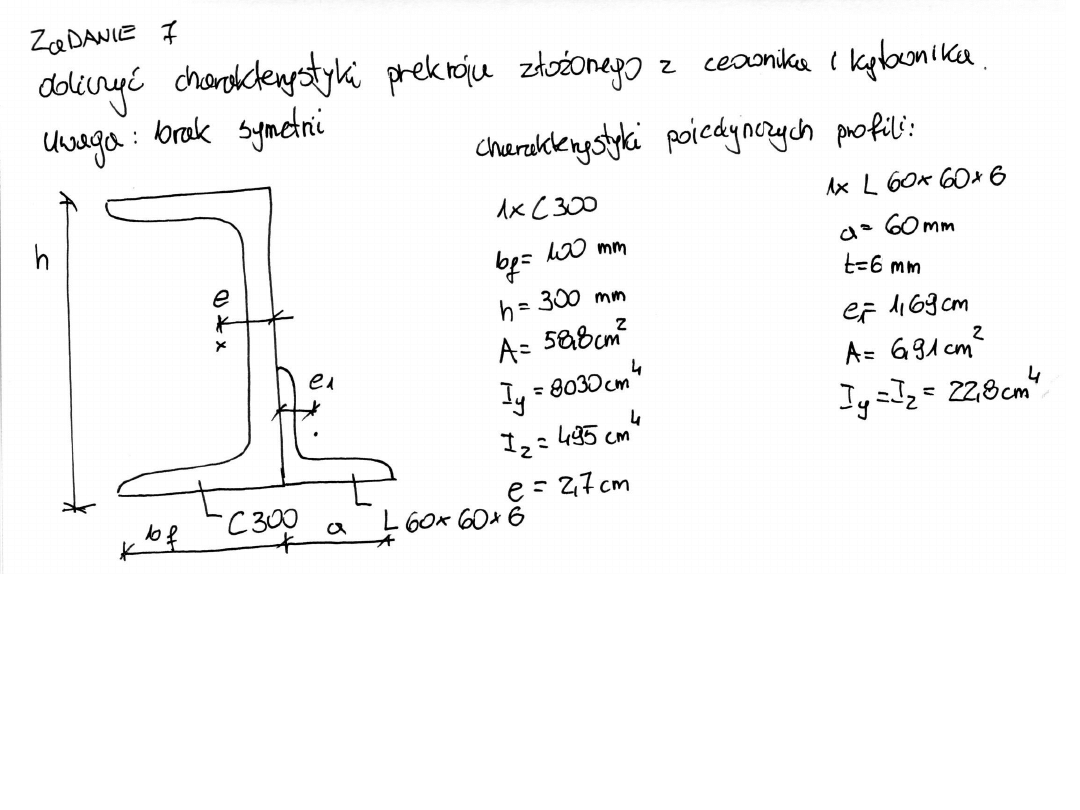 ZaDANIE 7
obliczyć charakterystyki przekroju złożonego z ceownika i kątownika.
Uwaga: brak symetrii
charakterystyki pojedynczych profili:
1x C300
bf= 100 mm
h= 300 mm
A= 58,8cm²
Iy = 8030cm⁴
Iz = 495 cm⁴
e = 2,7cm
1x L 60x60x6
a= 60mm
t=6 mm
e1= 1,69cm
A= 6,91cm²
Iy = Iz = 22,8cm⁴
h
e
e1
C300
L 60x60x6
bf
a